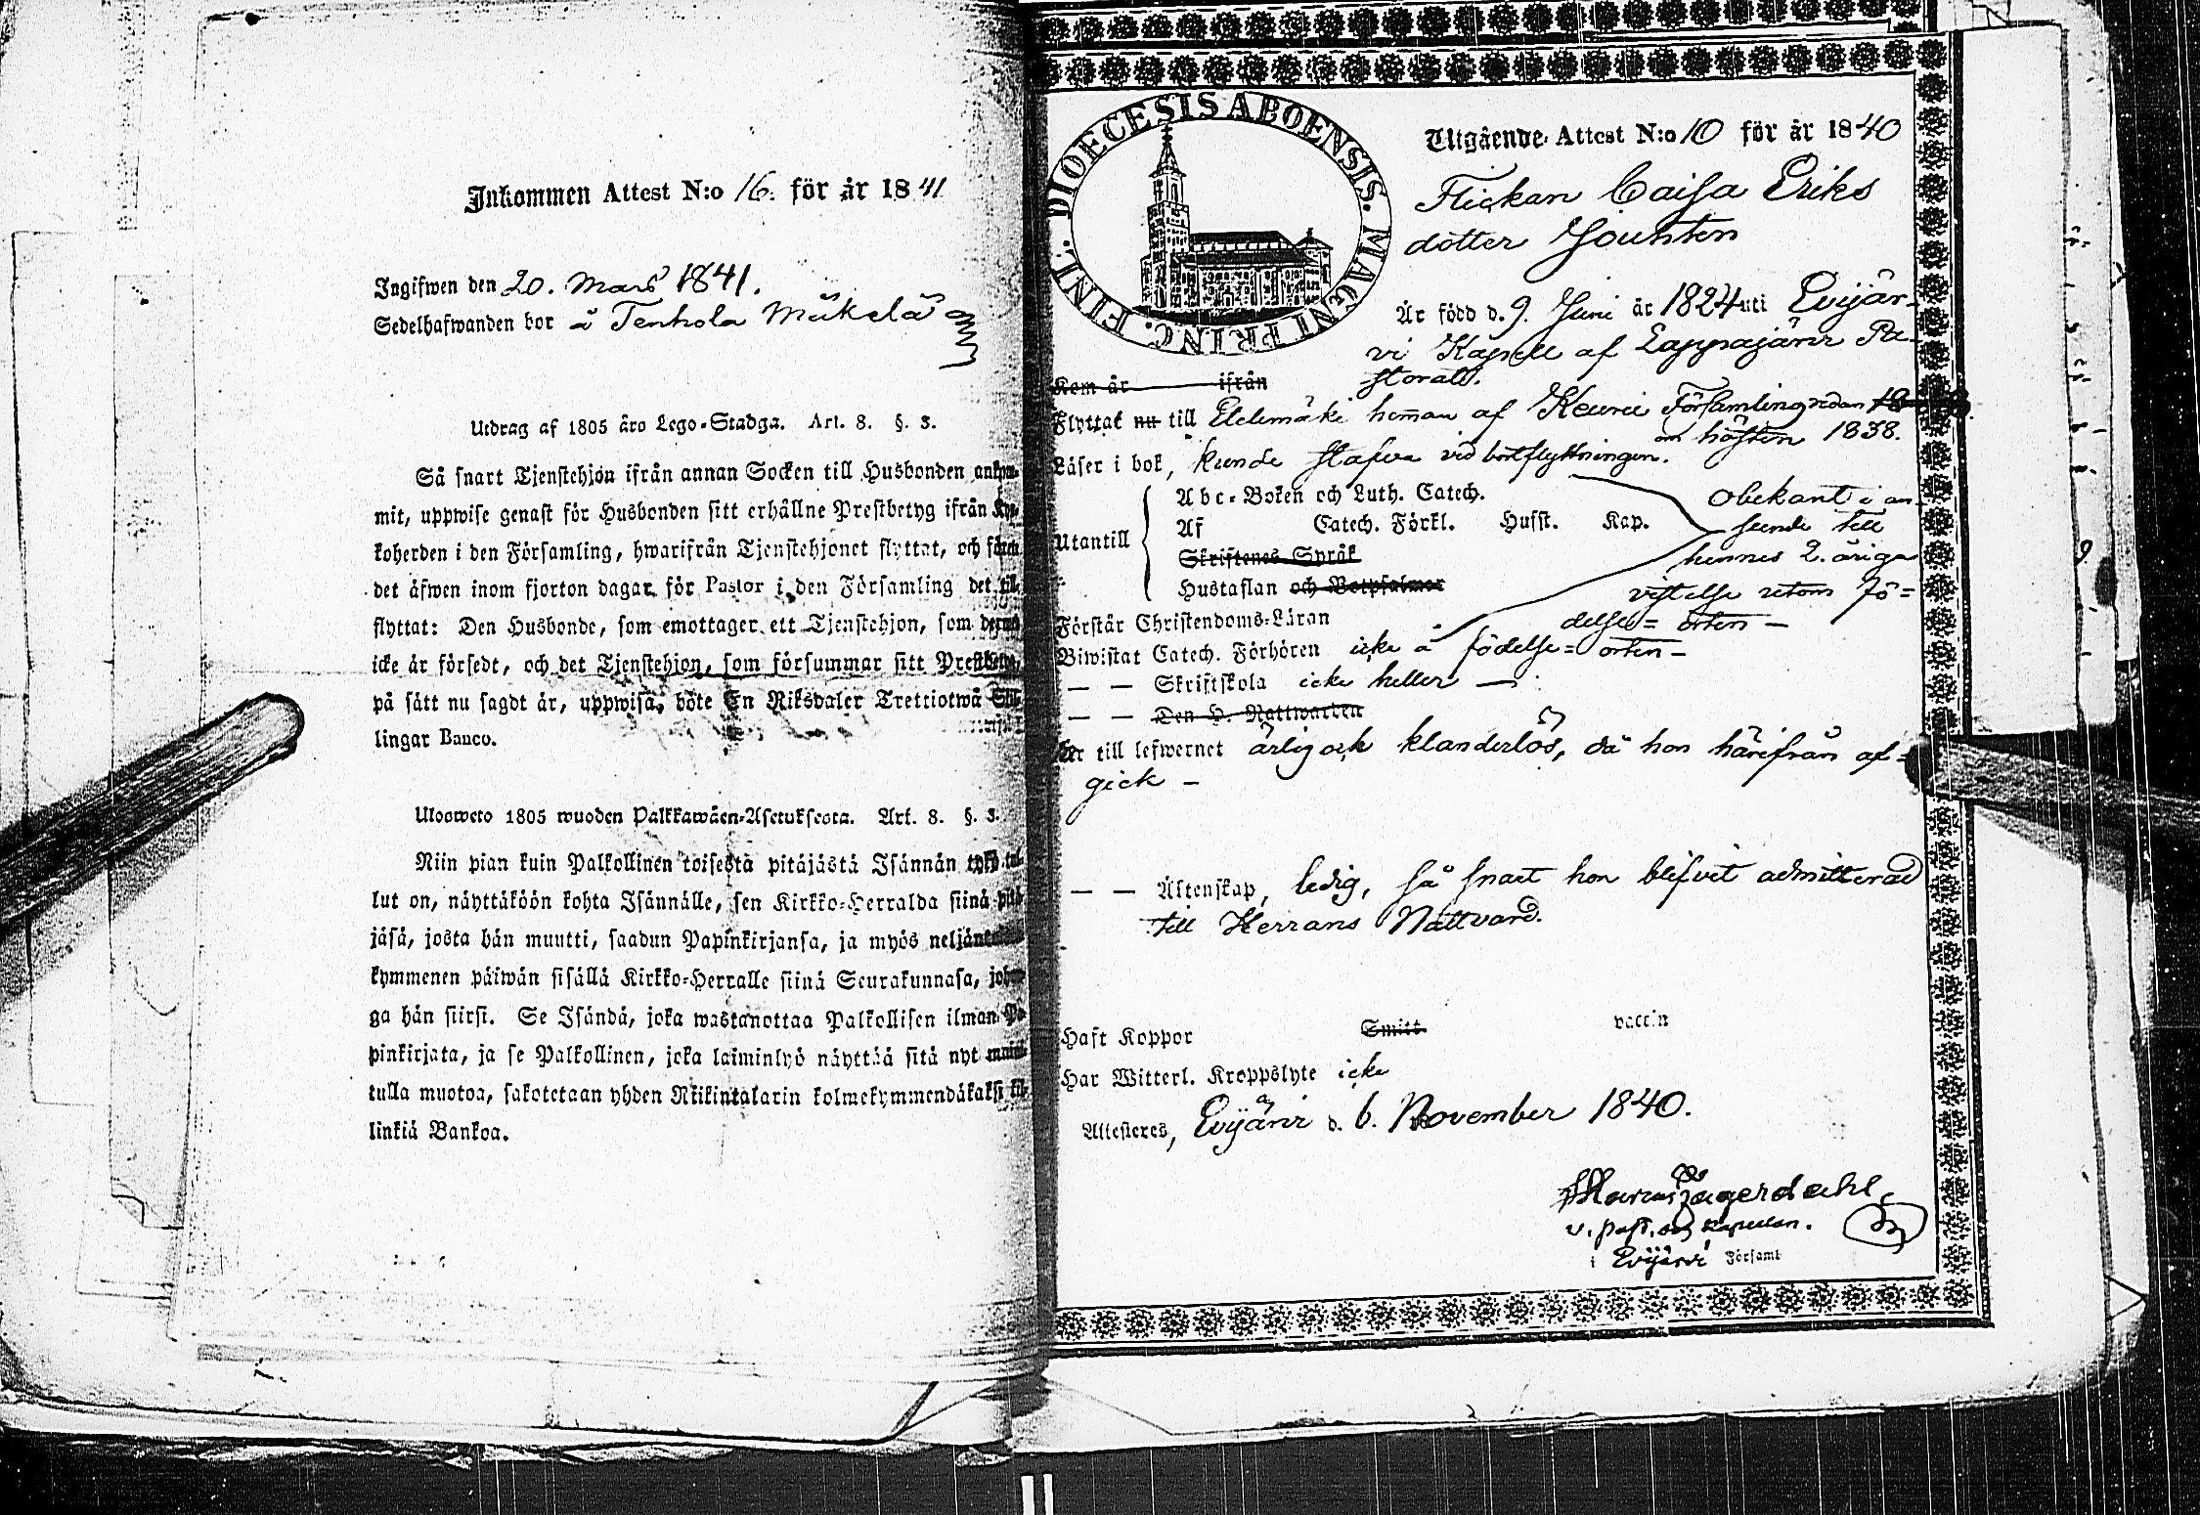 Inkommen Attest N:o 16. för år 1841
Ingifwen den 20. Mars 1841.
Sedelhafwanden bor å Tenhola Mäkelä
Utdrag af 1805 års Lego-Stadga. Art. 8. §. 3.
Så snart Tjenstehjon ifrån annan Socken till Husbonden
mit, uppwise genast för Husbonden sitt erhållne Prestbetyg ifrån
koherden i den Församling, hwarifrån Tjenstehjonet flyttat, och
det äfwen inom fjorton dagar för Pastor i den Församling det
flyttat: Den Husbonde, som emottager ett Tjenstehjon, som
icke är försedt, och det Tjenstehjon, som försummar sitt
på sätt nu sagdt är, uppwisa, böte En Riksdaler Trettiotwå
lingar Banco.
Uloosweto 1805 wuoden Palkkawäen-Asetuksesta. Art. 8. §. 3.
Niin pian kuin Palkollinen toisesta pitäjästä Isännän
lut on, näyttäköön kohta Isännälle, sen Kirkko-Herralda siinä
jäsä, josta hän muutti, saadun Papinkirjansa, ja myös
kymmenen päiwän sisällä Kirkko-Herralle siinä Seurakunnasa,
ga hän siirsi. Se Isändä, joka wastanottaa Palkollisen ilman
pinkirjata, ja se Palkollinen, joka laiminlyö näyttää sitä nyt
tulla muotoa, sakotetaan yhden Riikintalarin kolmekymmendäkaksi
linkiä Bankoa.
DIOECESIS ABOENSIS. MAGNI PRINC. FINL.
Utgående Attest N:o 10 för år 1840
Flickan Caisa Eriks
dotter
Är född d. 9. Juni år 1824 uti Evijär-
vi Kapell af Lappajärvi Pa-
storatt.
Kom år ifrån
Flyttat nu till hemman af Keuru Församling redan
om hösten 1838.
Läser i bok, kunde stafva vid bortflyttningen.
Utantill
Abc-Boken och Luth. Catech.
Af Catech. Förkl. Husst. Kap.
Skriftenes Språk
Hustaflan och Botpsalmer
Obekant i an-
seende till
hennes 2. åriga
vistelse utom fö-
delse-orten -
Förstår Christendoms-Läran
Biwistat Catech. Förhören icke å födelse-orten -
— — Skriftskola icke heller —
— — Den H. Nattwarden
Är till lefwernet ärlig och klanderlös, då hon härifrån af-
gick -
— — Äktenskap, ledig, så snart hon blifvit admitterad
till Herrans Nattvard.
Haft Koppor Smitt vaccin
Har Witterl. Kroppslyte icke
Attesteres, Evijärvi d. 6. November 1840.
v. past. och kapellan.
i Evijärvi Församl